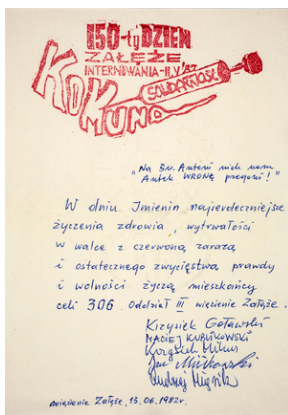 150-ty DZIEŃ
ZAŁĘŻE
INTERNOWANIA-11.V.82
KOMUNO
SOLIDARNOŚĆ
"Na św. Antoni niech nam
Antek WRONĘ przegoni!"
W dniu Imienin najserdeczniejsze
życzenia zdrowia, wytrwałości
w walce z czerwoną zarazą
i ostatecznego zwycięstwa prawdy
i wolności życzą mieszkańcy
celi 306 Oddział III więzienie Załęże.
Krzysiek Gotowski
MACIEJ KUBLIKOWSKI
Krzysiek
Andrzej
więzienie Załęże, 13.06.1982r.